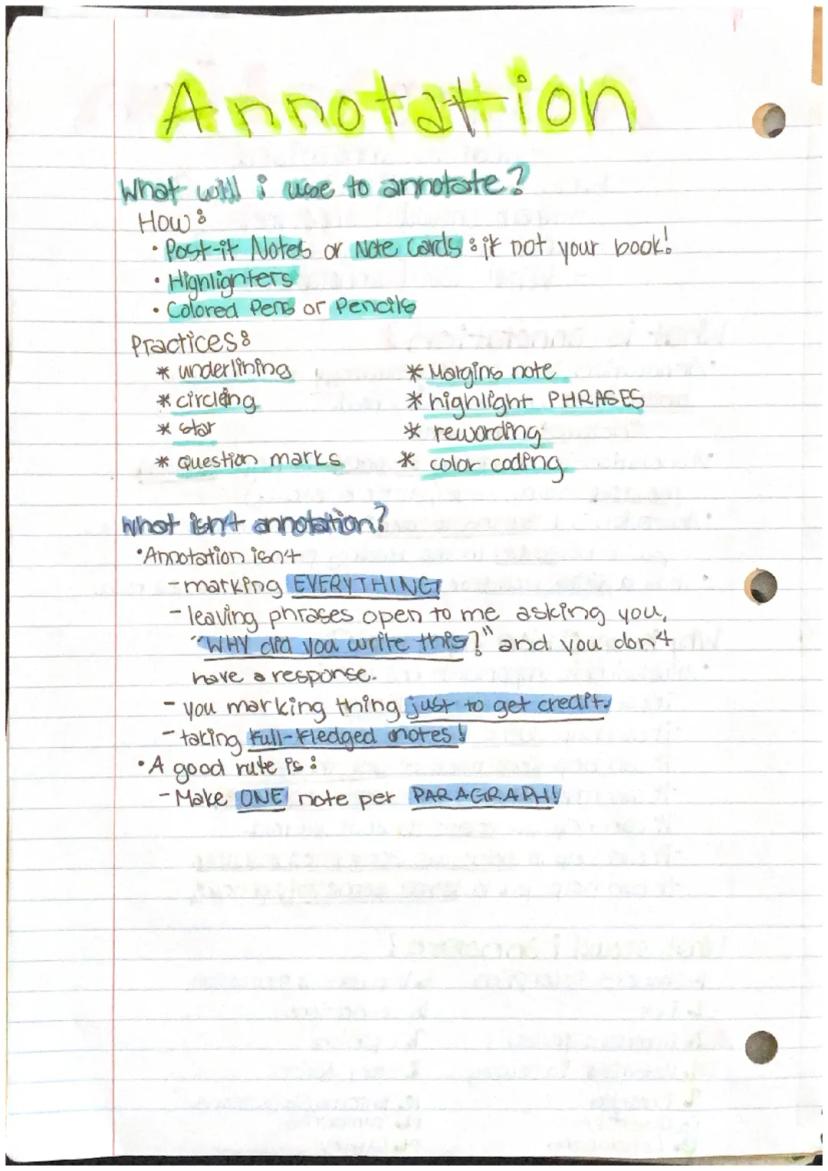 Annotation
What will i use to annotate?
How:
• Post-it Notes or Note Cards : if not your book!
• Highlighters
• Colored Pens or Pencils
Practices:
* underlining
* circling
* star
* question marks
* Margins note
* highlight PHRASES
* rewording
* color coding
What isn't annotation?
• Annotation isn't
- marking EVERYTHING!
- leaving phrases open to me asking you,
"WHY did you write this?" and you don't
have a response.
- you marking thing just to get credit.
- taking full-fledged notes!
• A good rule is:
- Make ONE note per PARAGRAPH!